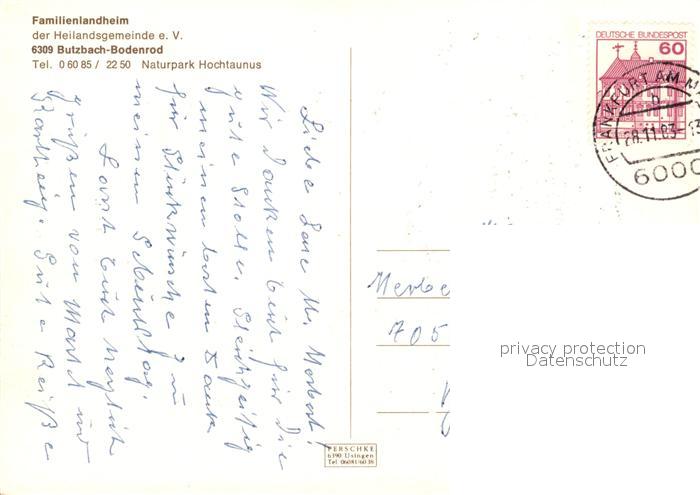 Familienlandheim
der Heilandsgemeinde e. V.
6309 Butzbach-Bodenrod
Tel. 0 60 85 / 22 50 Naturpark Hochtaunus
Liebe
Wir danken Euch für die
gute Gleichzeitig
meinen besten Dank
für Glückwünsche zu
meinem Geburtstag.
Lasst Euch herzlich
grüßen von und
Gute Reise
DEUTSCHE BUNDESPOST
60
FRANKFURT AM M
b
28.11.83
6000
705
PERSCHKE
6390 Usingen
Tel 06081/6036
privacy protection
Datenschutz